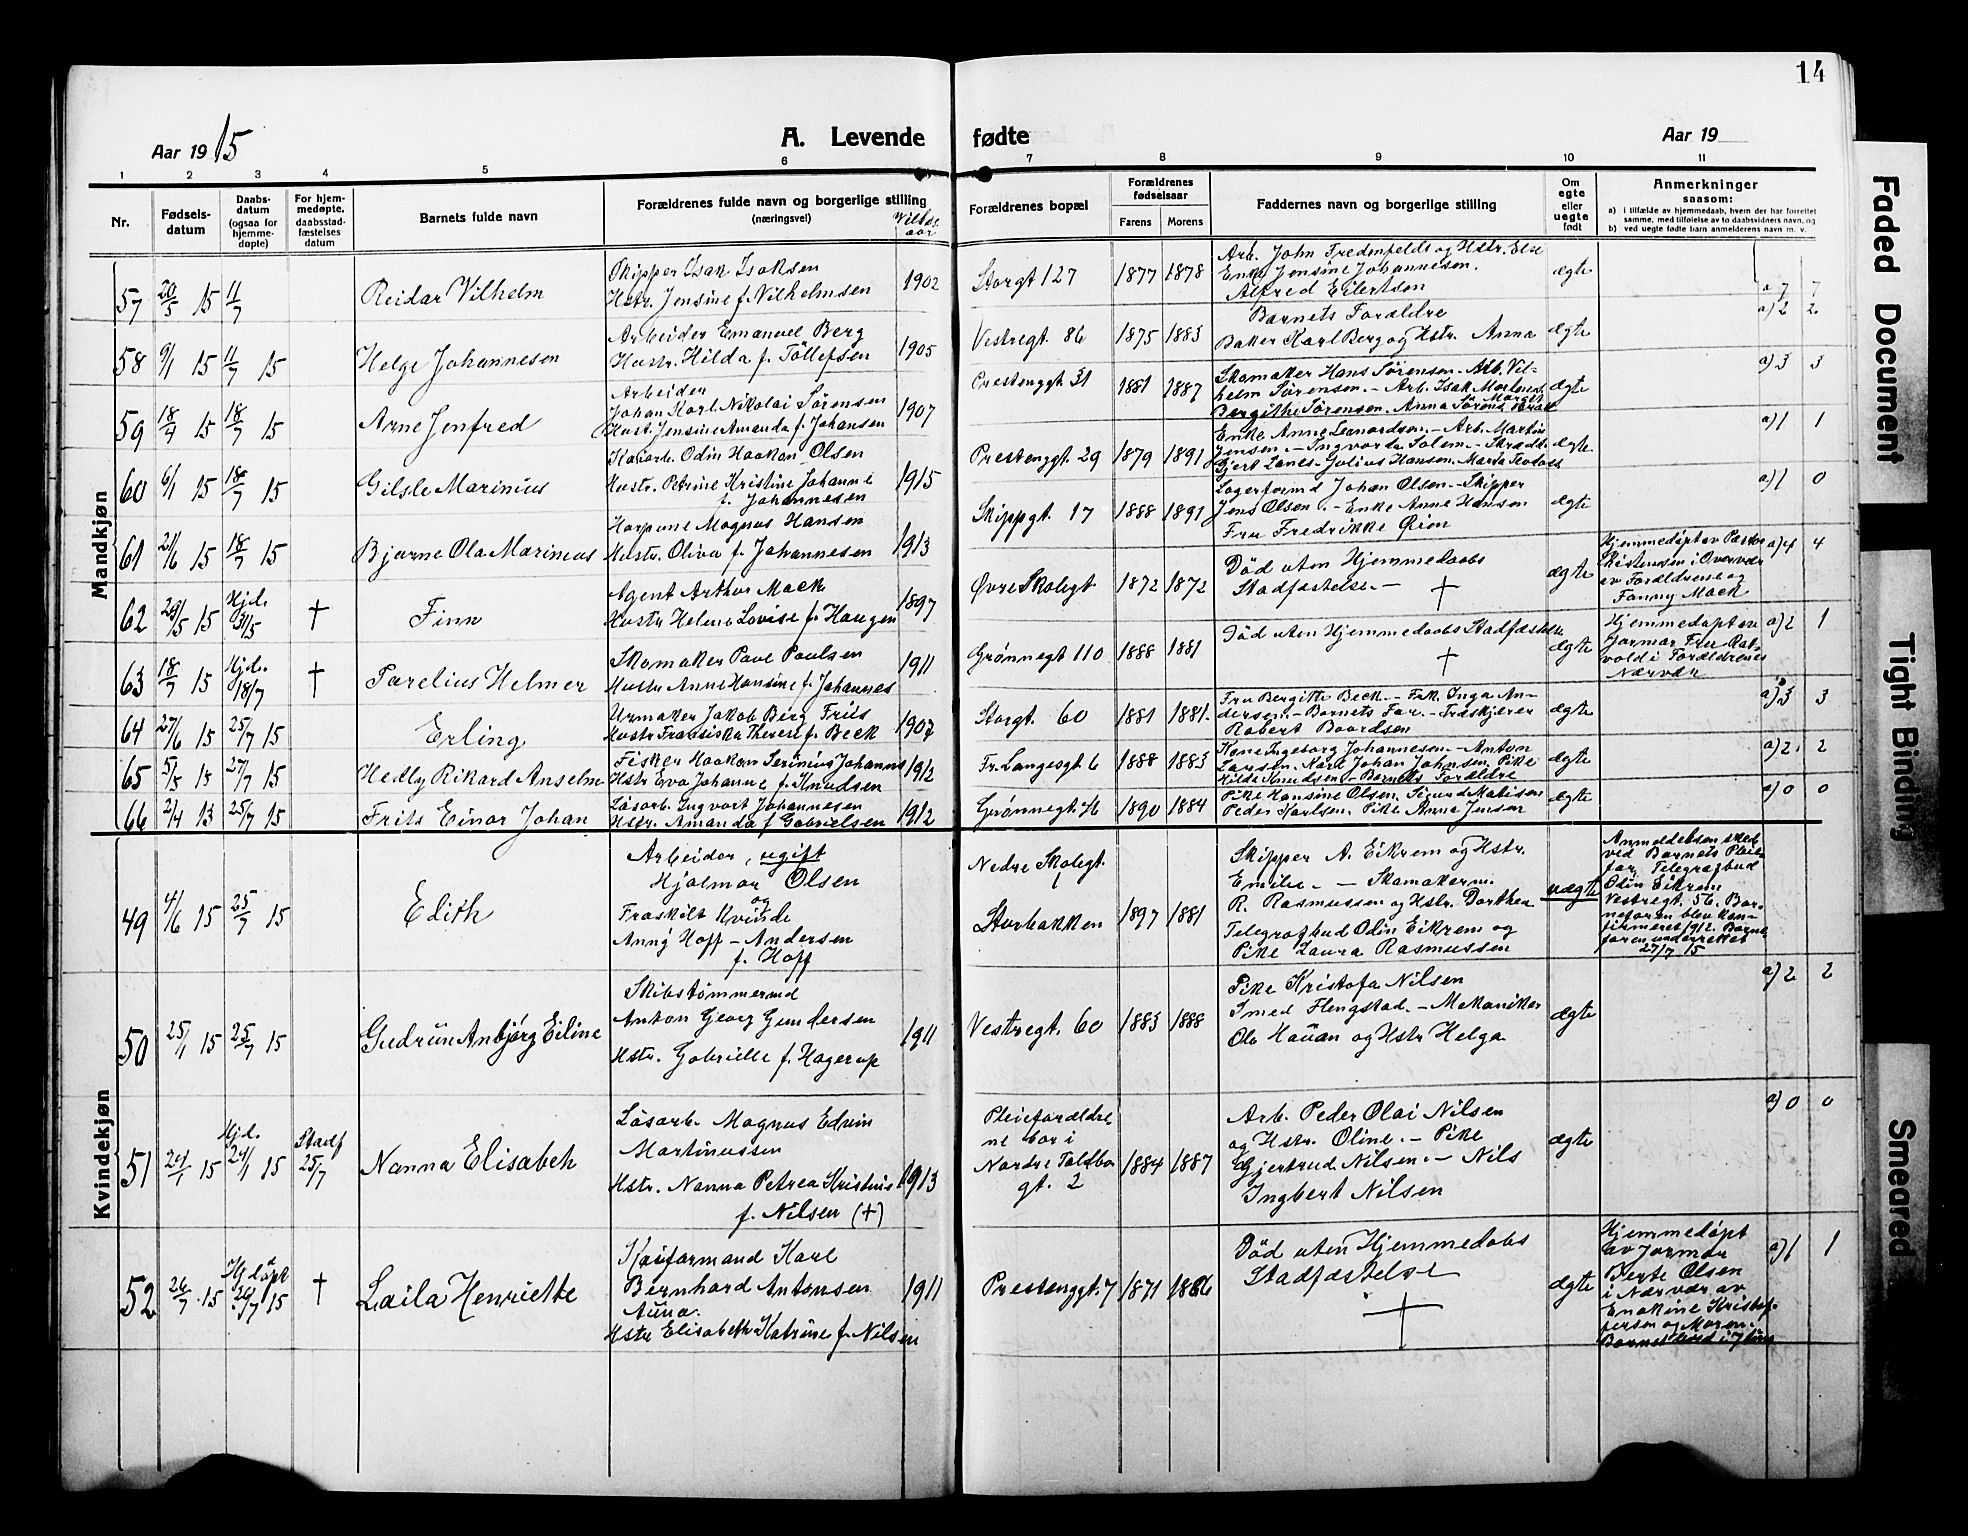 14
Aar 1915
A. Levende fødte
Aar 19
1 2 3 4 5 6 7 8 9 10 11
Nr.
Fødsels-
datum
Daabs-
datum
(ogsaa for
hjemme-
døpte)
For hjem-
medøpte,
daabsstad-
fæstelses
datum
Barnets fulde navn
Forældrenes fulde navn og borgerlige stilling
(næringsvei)
Vielses-
aar
Forældrenes bopæl
Forældrenes
fødselsaar
Farens Morens
Faddernes navn og borgerlige stilling
Om
egte
eller
uegte
født
Anmerkninger
saasom:
a) i tilfælde av hjemmedaab, hvem der har forrettet
samme, med tilføielse av to daabsvidners navn, og
b) ved uegte fødte barn anmelderens navn m. v.
Mandkjøn
57 20/5 15 11/7
Reidar Vilhelm
Skipper Isak Isaksen
Hstr. Jensine f. Vilhelmsen
1902
Storgt 127
1877 1878
Arb. John Fredenfeldt og Hstr. Else
Enke Jensine Johannesen.
Alfred Eilertsen
ægte
a) 7 7
58 9/1 15 11/7 15
Helge Johannesen
Arbeider Emanuel Berg
Hustr. Hilda f. Tollefsen
1905
Vestregt. 86
1875 1883
Barnets Forældre
Baker Karl Berg og Hstr. Anna
ægte
a) 2 2
59 18/4 15 18/7 15
Arne Jenfred
Arbeider
Johan Karl Nikolai Sørensen
Hust. Jensine Amanda f. Johansen
1907
Prestenggt. 31
1881 1887
Skomaker Hans Sørensen. Arb. Vil-
helm Sørensen. - Arb. Isak Mortens
Bergithe Sørensen. Anna Sørens.
ægte
a) 3 3
60 6/1 15 18/7 15
Gilsle Marinius
Odin Haakon Olsen
Hustr. Petrine Kristine Johanne
f. Johannesen
1915
Prestenggt. 29
1879 1891
Enke Anne Leonardsen. - Arb. Martin
Jensen. - Ingvarda Solem. -
Gjert Lanes. Julius Hansen. Marta
ægte
a) 1 1
61 21/6 15 18/7 15
Bjarne Ola Marinius
Harpune Magnus Hansen
Hustr. Oliva f. Johannesen
1913
Skippgt. 17
1888 1891
Lagerformd Johan Olsen. - Skipper
Jens Olsen. - Enke Anne Hansen
Fru Fredrikke Ørion
ægte
a) 1 0
62 29/5 15 Hjd. 31/5 †
Finn
Agent Arthur Mack
Hustr Helene Lovise f. Haugen
1897
Øvre Skolegt.
1872 1872
Død uten Hjemmedaabs
Stadfæstelse - †
ægte
Hjemmedøpt av Pastor
Kristensen i Overvær
av Forældrene og
Fanny Mack
a) 4 4
63 18/7 15 Hjd. 18/7 †
Parelius Helmer
Skomaker Paul Paulsen
Hustr Anne Hansine f. Johannes
1911
Grønnegt 110
1888 1881
Død uten Hjemmedaabs Stadfæstelse
†
ægte
Hjemmedøpt av
Jormor Fru Rat-
vold i Forældrenes
Nærvær
a) 2 1
64 27/6 15 25/7 15
Erling
Urmaker Jakob Berg Friis
Hustr Fransiska Therese f. Beck
1907
Storgt. 60
1881 1881.
Fru Bergitte Beck - Frk. Inga An-
dersen - Barnets Far. - Træskjærer
Robert Baardsen
ægte
a) 3 3
65 5/5 15 27/7 15
Hedly Rikard Anselm
Fisker Haakon Serinius Johanns
Hstr Eva Johanne f. Knudsen
1912
Fr. Langesgt. 6
1888 1883
Kone Ingeborg Johannesen - Anton
Larsen. Karl Johan Johnsen. Pike
Hilda Knudsen - Barnets Forældre
ægte
a) 2. 2
66 2/4 13 25/7 15
Frits Einar Johan
Løsarb. Ingvart Johannesen
Hstr. Amanda f. Gabrielsen
1912
Grønnegt.
1890 1884
Pike Hansine Olsen. Sigurd Matisen
Peder Karlsen. Pike Anna Jensen
ægte
a) 0 0
Kvindekjøn
49 4/6 15 25/7 15
Edith
Arbeider, ugift
Hjalmar Olsen
og
Fraskilt Kvinde
Anny Hoff - Andersen
f. Hoff
Nedre Skolegt.
Storbakken
1897 1881
Skipper A. Eikrem og Hstr.
Emilie. - Skomakerm.
R. Rasmussen og Hstr. Dorthea
Telegrafbud Odin Eikrem og
Pike Laura Rasmussen
uægte
Anmeldelsen sked
ved Barnets Pleie-
far, Telegrafbud
Odin Eikrem
Vestregt. 56. Bar-
nefaren blev kon-
firmeret 1912. Barne
faren underrettet
27/7 15
50 25/1 15 25/7 15
Gudrun Anbjørg Eiline
Skibstømmermd
Anton Georg Gundersen
Hstr. Gabrielle f. Hagerup
1911
Vestregt. 60
1883 1888
Pike Kristofa Nilsen
Smed Flengstad. - Mekaniker
Ole Hauan og Hstr Helga
ægte
a) 2 2
51 24/1 15 Hjd. 24/1 15 Stadf 25/7
Nanna Elisabeth
Løsarb. Magnus Edvin
Martinussen
Hstr. Nanna Petrea Kristnis
f. Nilsen (†)
1913
Pleieforældre
ne bor i
Nordre Toldbo
gt. 2
1884 1887
Arb. Peder Olai Nilsen
og Hstr. Oline. - Pike
Gjertrud Nilsen. - Nils
Ingbert Nilsen
ægte
a) 0 0
52 26/7 15 Hjdøpt 26/7 15 †
Laila Henriette
Kaiformand Karl
Bernhard Antonsen
Auna.
Hstr Elisabeth Katrine f. Nilsen
1911
Prestenggt. 7
1871 1886
Død uten Hjemmedabs
Stadfæstelse
†
ægte
Hjemmedøpt
av Jormor
Berte Olsen
i Nærvær av
Enokine Kristof-
fersen og Moren.
Barnet
a) 1 1
Faded Document
Tight Binding
Smeared